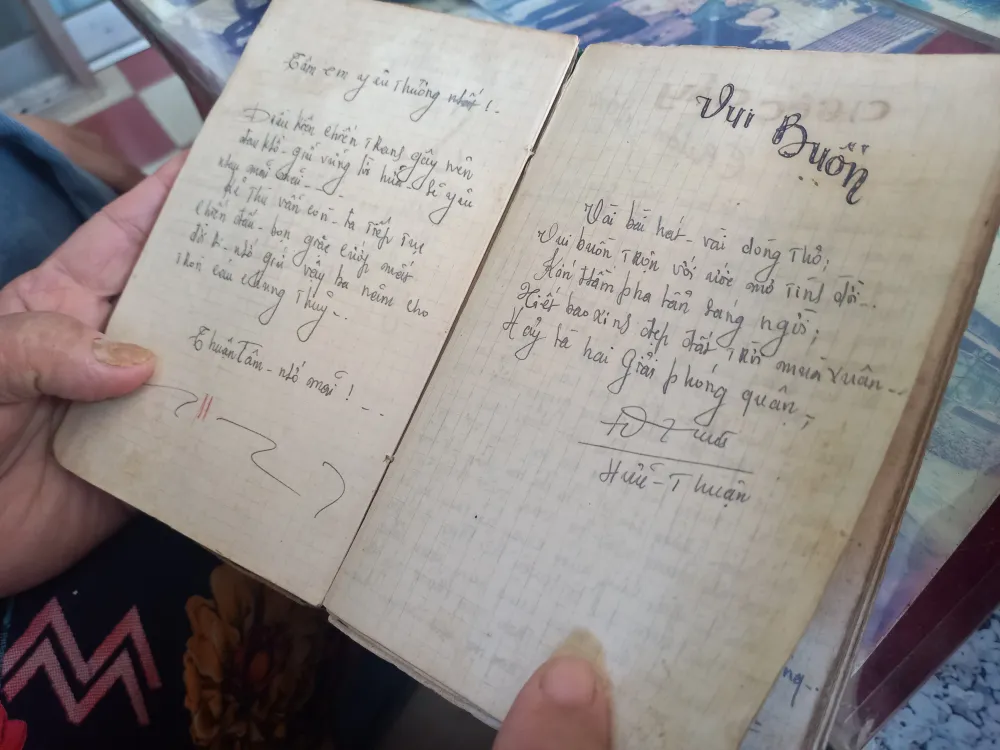 Tâm em yêu thương nhất!.
Điều kiện chiến tranh gây nên
đau khổ - giữ vững lời hứa - sẽ yêu
nhau mãi mãi - -
kẻ thù vẫn còn - ta tiếp tục
chiến đấu - bọn giặc cướp nước
đời A - nhớ giữ vậy ba niềm cho
tròn câu chung thủy..
Thuận Tâm - nhớ mãi! - ..
Vui Buồn
Vài bài hát - vài dòng thơ;
Vui buồn trộn với ước mơ tình đời..
pha lẫn sáng ngời;
Hiết bao xinh đẹp đất trời mùa xuân...
Hãy là hai Giải phóng quân;
Hữu - Thuận